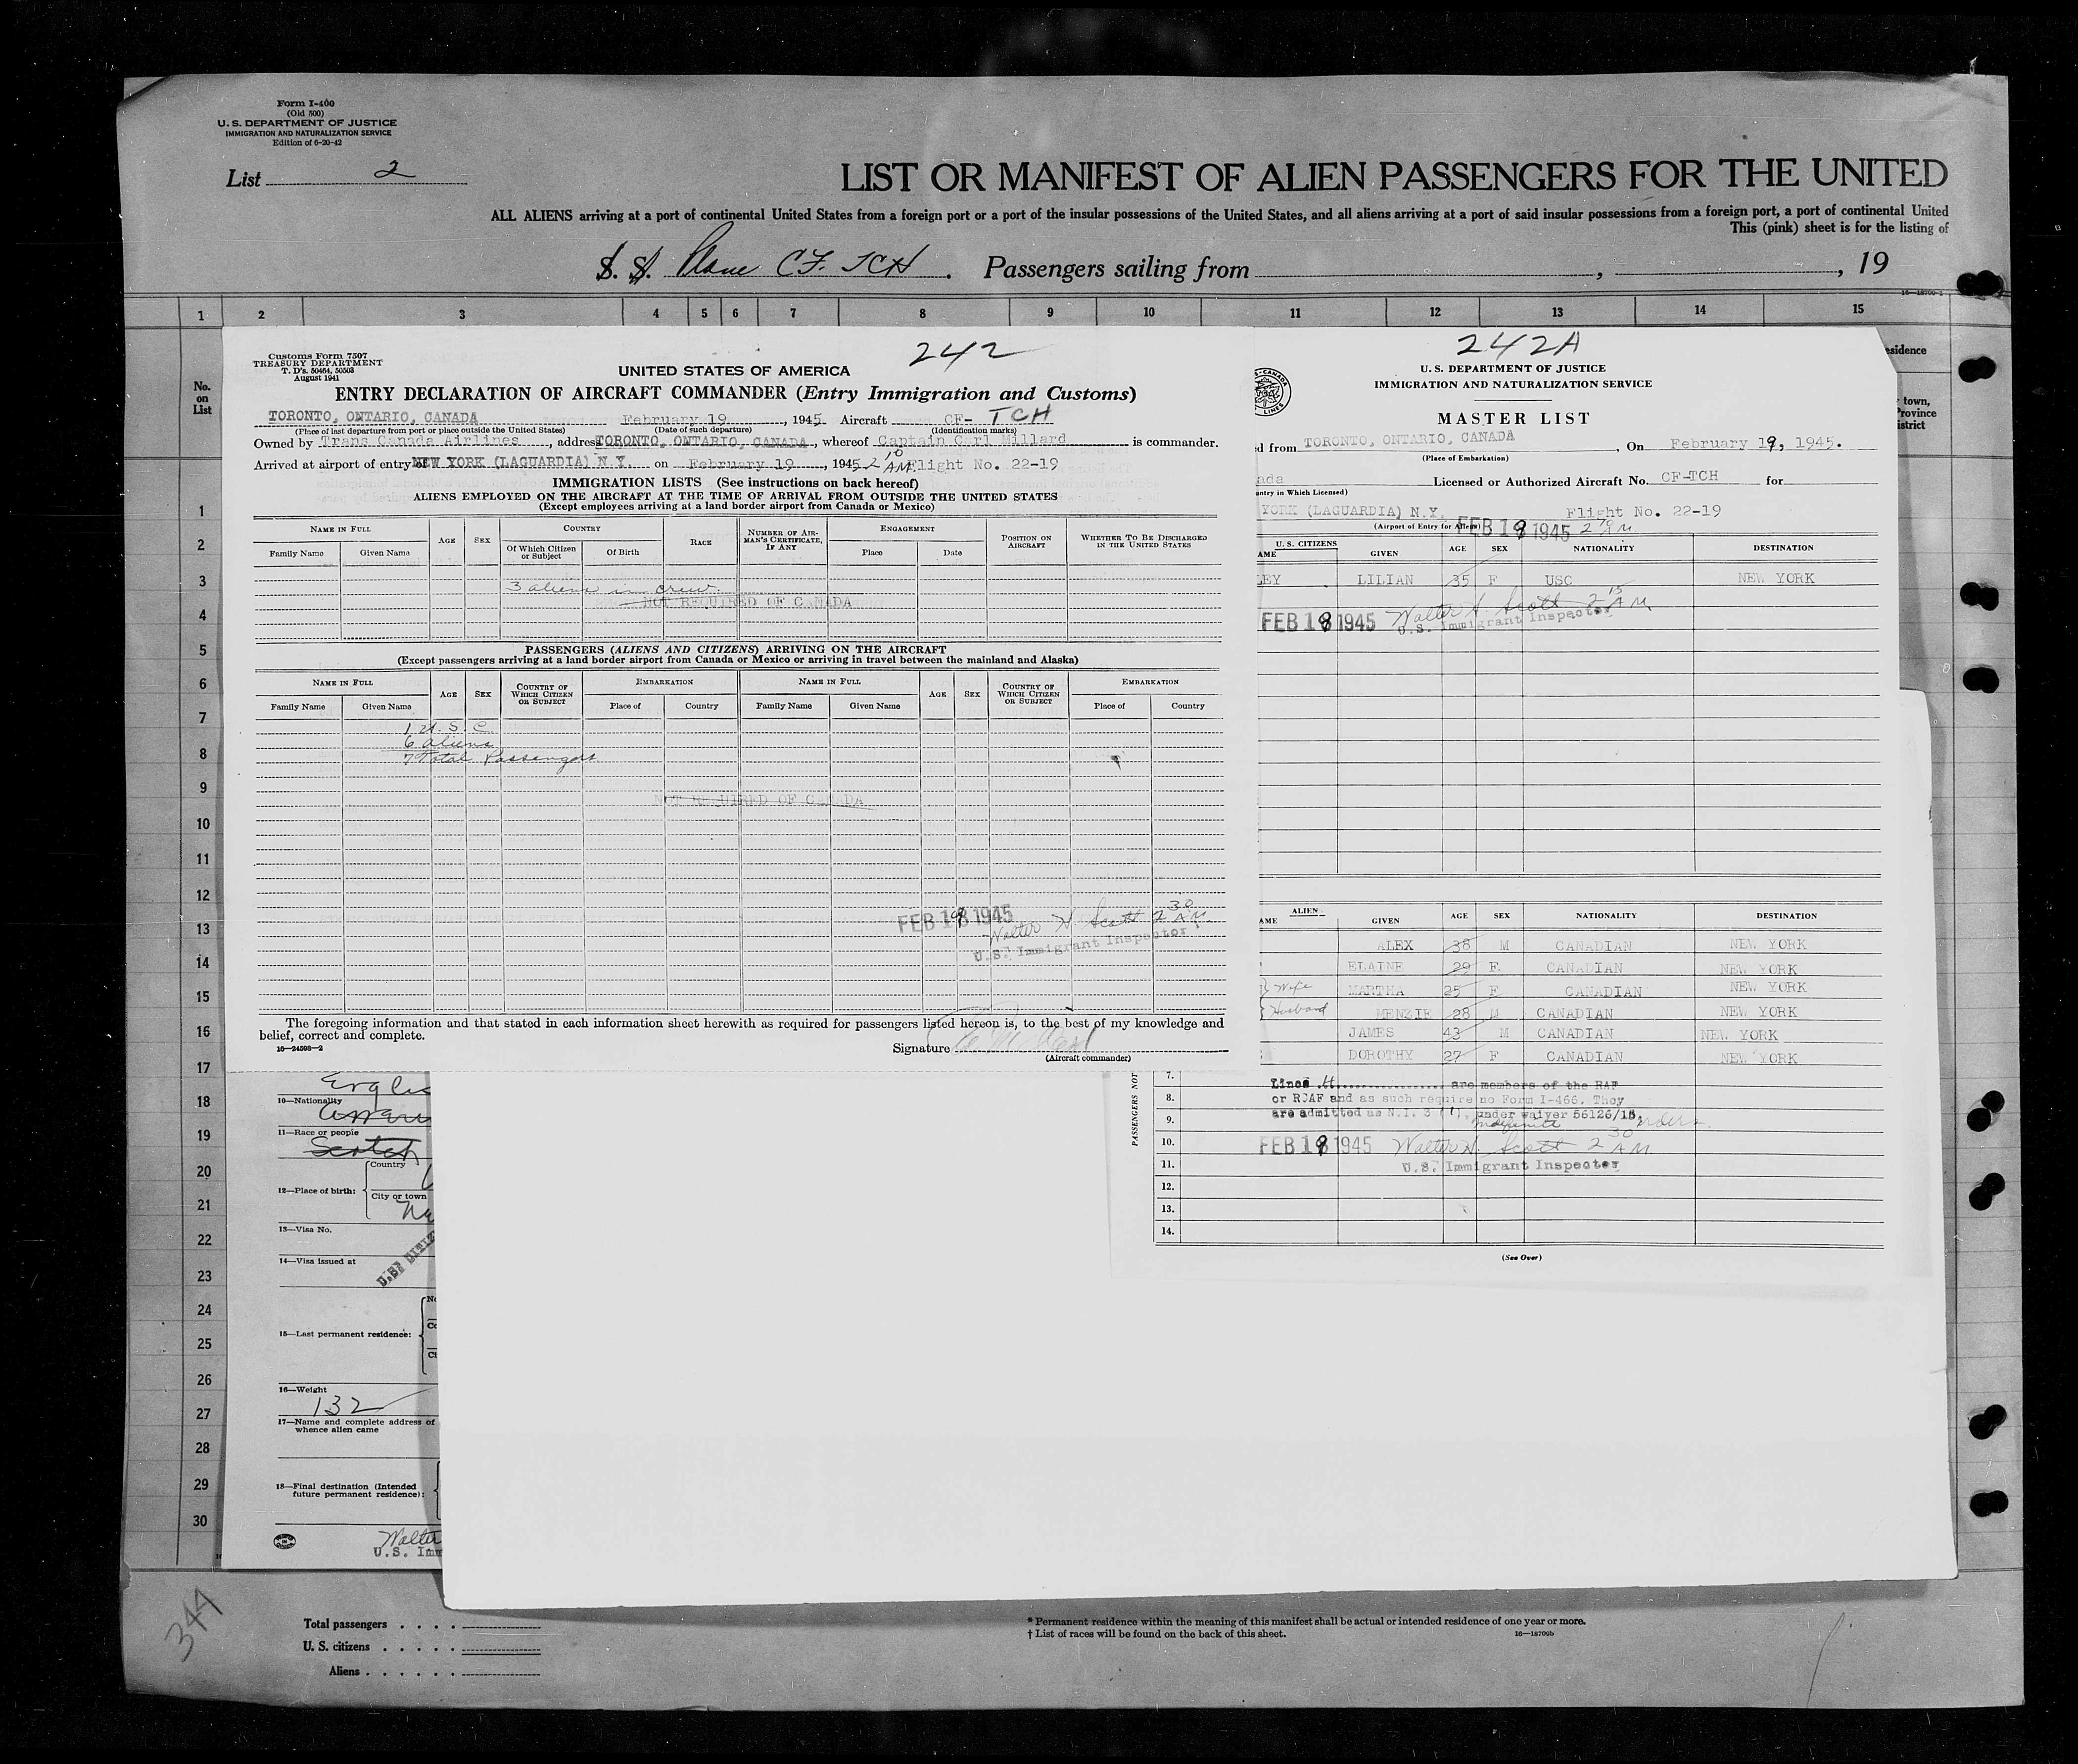 Form I-400
(Old 500)
U. S. DEPARTMENT OF JUSTICE
IMMIGRATION AND NATURALIZATION SERVICE
Edition of 6-20-42
List 2
LIST OR MANIFEST OF ALIEN PASSENGERS FOR THE UNITED
ALL ALIENS arriving at a port of continental United States from a foreign port or a port of the insular possessions of the United States, and all aliens arriving at a port of said insular possessions from a foreign port, a port of continental United
This (pink) sheet is for the listing of
S. S. Plane CF. TCH. Passengers sailing from , , 19
1 2 3 4 5 6 7 8 9 10 11 12 13 14 15
No. on List
esidence
town,
Province
istrict
1
2
3
4
5
6
7
8
9
10
11
12
13
14
15
16
17
18
19
20
21
22
23
24
25
26
27
28
29
30
Customs Form 7507
TREASURY DEPARTMENT
T. D's. 50464, 50503
August 1941
242
UNITED STATES OF AMERICA
ENTRY DECLARATION OF AIRCRAFT COMMANDER (Entry Immigration and Customs)
TORONTO, ONTARIO, CANADA February 19, 1945 Aircraft CF- TCH
(Place of last departure from port or place outside the United States) (Date of such departure) (Identification marks)
Owned by Trans Canada Airlines, address TORONTO, ONTARIO, CANADA, whereof Captain Carl Millard is commander.
Arrived at airport of entry of NEW YORK (LAGUARDIA) N.Y. on February 19, 1945 2 10 AM. Flight No. 22-19
IMMIGRATION LISTS (See instructions on back hereof)
ALIENS EMPLOYED ON THE AIRCRAFT AT THE TIME OF ARRIVAL FROM OUTSIDE THE UNITED STATES
(Except employees arriving at a land border airport from Canada or Mexico)
NAME IN FULL AGE SEX COUNTRY RACE NUMBER OF AIRMAN'S CERTIFICATE, IF ANY ENGAGEMENT POSITION ON AIRCRAFT WHETHER TO BE DISCHARGED IN THE UNITED STATES
Family Name Given Name Of Which Citizen or Subject Of Birth Place Date
3 aliens in crew.
NOT REQUIRED OF CANADA
PASSENGERS (ALIENS AND CITIZENS) ARRIVING ON THE AIRCRAFT
(Except passengers arriving at a land border airport from Canada or Mexico or arriving in travel between the mainland and Alaska)
NAME IN FULL AGE SEX COUNTRY OF WHICH CITIZEN OR SUBJECT EMBARKATION NAME IN FULL AGE SEX COUNTRY OF WHICH CITIZEN OR SUBJECT EMBARKATION
Family Name Given Name Place of Country Family Name Given Name Place of Country
1 U. S. C
6 aliens
7 Total Passengers
NOT REQUIRED OF CANADA
FEB 19 1945 Walter H. Scott 2 30 A M.
U.S. Immigrant Inspector
The foregoing information and that stated in each information sheet herewith as required for passengers listed hereon is, to the best of my knowledge and
belief, correct and complete.
16—24598—2
Signature
(Aircraft commander)
242A
U. S. DEPARTMENT OF JUSTICE
IMMIGRATION AND NATURALIZATION SERVICE
MASTER LIST
d from TORONTO, ONTARIO, CANADA, On February 19, 1945.
(Place of Embarkation)
ada Licensed or Authorized Aircraft No. CF-TCH for
untry in Which Licensed)
YORK (LAGUARDIA) N.Y. Flight No. 22-19
(Airport of Entry for Aliens)
FEB 19 1945
U. S. CITIZENS
AME GIVEN AGE SEX NATIONALITY DESTINATION
LEY LILIAN 35 F USC NEW YORK
FEB 19 1945 Walter H. Scott 2 15 A M
U.S. Immigrant Inspector
ALIEN
AME GIVEN AGE SEX NATIONALITY DESTINATION
ALEX 38 M CANADIAN NEW YORK
ELAINE 29 F. CANADIAN NEW YORK
Wife MARTHA 25 F CANADIAN NEW YORK
Husband MENZIE 28 M CANADIAN NEW YORK
JAMES 43 M CANADIAN NEW YORK
DOROTHY 27 F CANADIAN NEW YORK
PASSENGERS NOT
7.
8.
9.
10.
11.
12.
13.
14.
Lines 4 are members of the RAF
or RCAF and as such require no Form I-466. They
are admitted as N.I. 3 (1), under waiver 56126/15,
Indefinite
FEB 19 1945 Walter H. Scott 2 30 A M
U.S. Immigrant Inspector
(See Over)
10—Nationality
11—Race or people
Scotch
12—Place of birth:
Country
City or town
13—Visa No.
14—Visa issued at
15—Last permanent residence:
16—Weight
132
17—Name and complete address of
whence alien came
18—Final destination (Intended
future permanent residence):
Walter
U.S. Imm
344
Total passengers
U. S. citizens
Aliens
* Permanent residence within the meaning of this manifest shall be actual or intended residence of one year or more.
† List of races will be found on the back of this sheet.
16—18700b